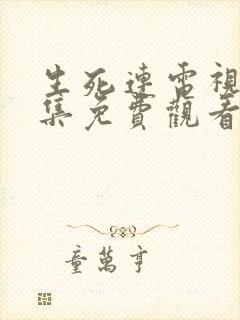 生死連電視
集免費觀看
童萬亨